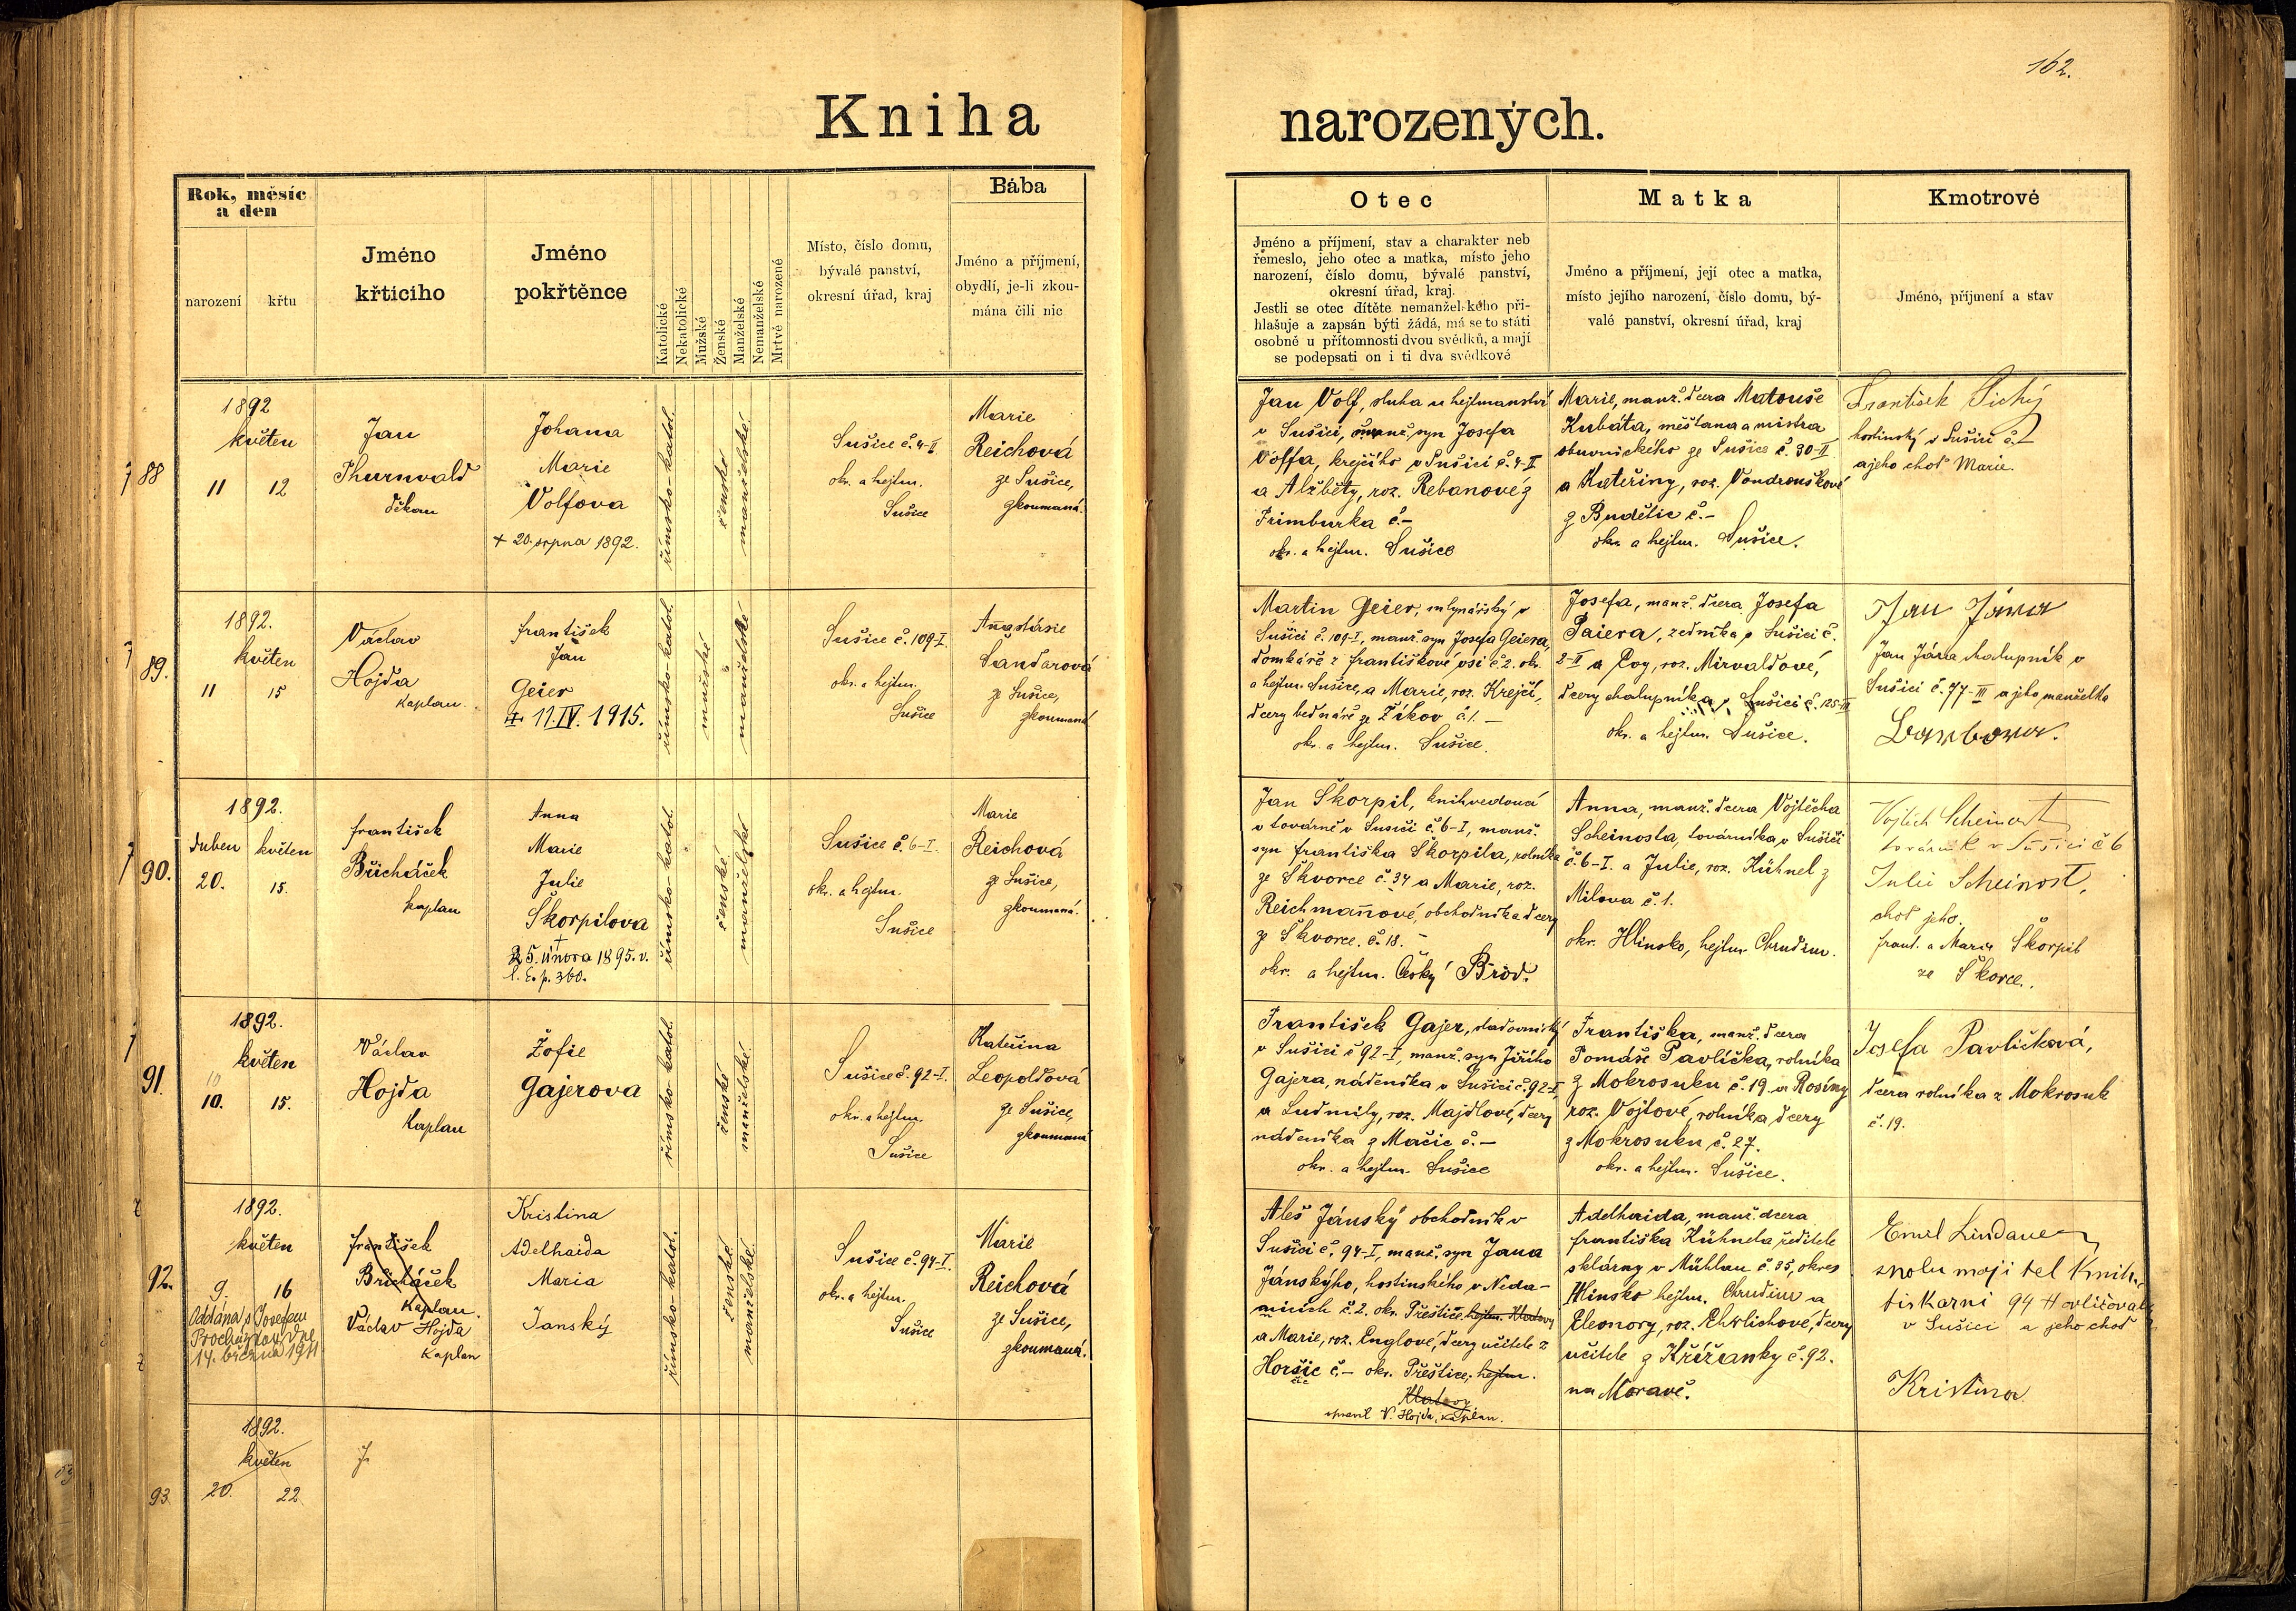 162.
Kniha narozených.
Rok, měsíc
a den
narození
křtu
Jméno
křticiho
Jméno
pokřtěnce
Katolické
Nekatolické
Mužské
Ženské
Manželské
Nemanželské
Mrtvě narozené
Místo, číslo domu,
bývalé panství,
okresní úřad, kraj
Bába
Jméno a příjmení,
obydlí, je-li zkou-
mána čili nic
Otec
Jméno a příjmení, stav a charakter neb
řemeslo, jeho otec a matka, místo jeho
narození, číslo domu, bývalé panství,
okresní úřad, kraj.
Jestli se otec dítěte nemanželského při-
hlašuje a zapsán býti žádá, má se to státi
osobně u přítomnosti dvou svědků, a mají
se podepsati on i ti dva svědkové
Matka
Jméno a příjmení, její otec a matka,
místo jejího narození, číslo domu, bý-
valé panství, okresní úřad, kraj
Kmotrové
Jméno, příjmení a stav
88
1892
květen
11 12
Jan
Thurnvald
děkan
Johana
Marie
Volfova
+ 20. srpna 1892.
římsko-katol.
ženské
manželské
Sušice č. 4-II
okr. a hejtm.
Sušice
Marie
Reichová
ze Sušice,
zkoumaná.
Jan Volf, sluha u hejtmanství
v Sušici, manž. syn Josefa
Volfa, krejčího v Sušici č. 4-II
a Alžběty, roz. Rebanové z
Frimburka č. –
okr. a hejtm. Sušice
Marie, manž. dcera Matouše
Kubáta, měšťana a mistra
obuvnického ze Sušice č. 30-II
a Kateřiny, roz. Vondrouškové
z Budětic č. –
okr. a hejtm. Sušice.
František Tichý
hostinský v Sušici č.
a jeho choť Marie.
89.
1892.
květen
11 15
Václav
Hojda
Kaplan.
František
Jan
Geier
11. IV. 1915.
římsko-katol.
mužské
manželské
Sušice č. 109-I.
okr. a hejtm.
Sušice
Anastásie
Šandarová
ze Sušice,
zkoumaná
Martin Geier, mlynářský v
Sušici č. 109-I, manž. syn Josefa Geiera,
domkáře z Františkové vsi č. 2. okr.
a hejtm. Sušice, a Marie, roz. Krejčí,
dcery bednáře ze Žíkov č. 1. –
okr. a hejtm. Sušice.
Josefa, manž. dcera Josefa
Paiera, zedníka v Sušici č.
2-II a Evy, roz. Mirvaldové,
dcery chalupníka v Sušici č. 125-III
okr. a hejtm. Sušice.
Jan Jára
Jan Jára chalupník v
Sušici č. 77-III a jeho manželka
Barbora.
90.
1892.
duben květen
20. 15.
František
Břicháček
kaplan
Anna
Marie
Julie
Škorpilova
+
25. února 1895. v.
l. E. p. 360.
římsko-katol.
ženské
manželské
Sušice č. 6-I.
okr. a hejtm.
Sušice
Marie
Reichová
ze Sušice,
zkoumaná.
Jan Škorpil, knihvedoucí
v továrně v Sušici č. 6-I, manž.
syn Františka Škorpila, rolníka
ze Škvorce č. 34 a Marie, roz.
Reichmanové, obchodníka dcery
ze Škvorce. č. 18. –
okr. a hejtm. Český Brod.
Anna, manž. dcera Vojtěcha
Scheinosta, továrníka v Sušici
č. 6-I. a Julie, roz. Kühnel z
Milova č. 1.
okr. Hlinsko, hejtm. Chrudim.
Vojtěch Scheinost
továrník v Sušici č 6
Julie Scheinost,
choť jeho.
Frant. a Marie Škorpil
ze Škorce.
91.
1892.
květen
10
10. 15.
Václav
Hojda
Kaplan
Žofie
Gajerova
římsko-katol.
ženské
manželské.
Sušice č. 92-I.
okr. a hejtm.
Sušice
Kateřina
Leopoldová
ze Sušice,
zkoumaná
František Gajer, sladovnický
v Sušici č 92-I, manž. syn Jiřího
Gajera, nádeníka v Sušici č. 92-I,
a Ludmily, roz. Majdlové, dcery
nádeníka z Mačic č. –
okr. a hejtm. Sušice
Františka, manž. dcera
Tomáše Pavlíčka, rolníka
z Mokrosuku č. 19 a Rosiny
roz. Vojtové, rolníka dcery
z Mokrosuku č. 27.
okr. a hejtm. Sušice.
Josefa Pavlíčková,
dcera rolníka z Mokrosuk
č. 19.
92.
1892.
květen
9. 16
Oddána s Josefem
Procházkou
14. března 1911
František
Břicháček
Kaplan.
Václav Hojda
Kaplan
Kristina
Adelhaida
Maria
Janský
římsko-katol.
ženské
manželské.
Sušice č. 94-I.
okr. a hejtm.
Sušice
Marie
Reichová
ze Sušice,
zkoumaná.
Aleš Jánský obchodník v
Sušici č. 94-I, manž. syn Jana
Jánského, hostinského v Neda-
nicích č. 2. okr. Přeštice hejtm. Klatovy
a Marie, roz. Englové, dcery učitele z
Horšic č. – okr. Přeštice, hejtm.
Klatovy
opravil V. Hojda, kaplan.
Adelhaida, manž. dcera
Františka Kühnela ředitele
sklárny v Mühlau č. 35, okres
Hlinsko hejtm. Chrudim a
Eleonory, roz. Ehrlichové, dcery
učitele z Křižanky č. 92.
na Moravě.
Emil Lindauer
spolu majitel Knih-
tiskarni 94
v Sušici a jeho choť
Kristina
93.
1892.
květen
20. 22